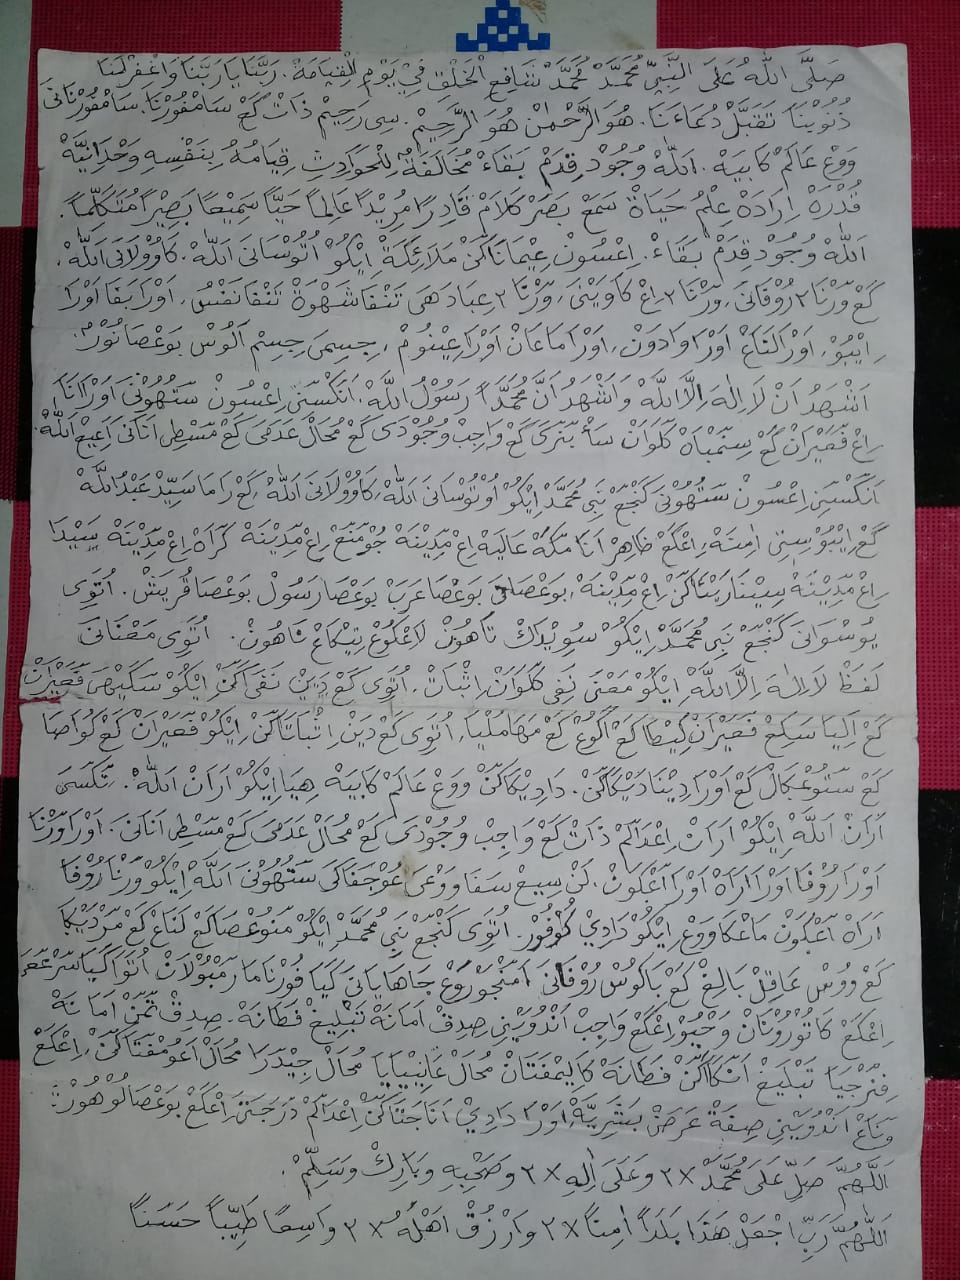 صَلَّى اللهُ عَلَى النَّبِيِّ مُحَمَّدْ مُحَمَّدْ شَافِعِ الْخَلْقِ فِيْ يَوْمِ الْقِيَامَةْ. رَبَّنَا يَا رَبَّنَا وَاغْفِرْ لَنَا
ذُنُوْبَنَا تَقَبَّلْ دُعَاءَنَا. هُوَ الرَّحْمٰنْ هُوَ الرَّحِيْمْ. سِى رَحِيْمْ ذَاتْ كَڠْ سَامْفُوْرْنَا. سَامْفُوْرْنَانَى
وَوْڠ عَالَمْ كَابَيْهْ. اَللهْ وُجُوْدْ قِدَمْ بَقَاءْ مُخَالَفَةُ لِلْحَوَادِثِ قِيَامُهُ بِنَفْسِهِ وَحْدَانِيَّةْ
قُدْرَةْ اِرَادَةْ عِلْمُ حَيَاةْ سَمَعْ بَصَرْ كَلَامْ قَادِرًا مُرِيْدًا عَالِمًا حَيًّا سَمِيْعًا بَصِيْرًا مُتَكَلِّمًا.
اَللهْ وُجُوْدْ قِدَمْ بَقَاءْ. اِڠْسُوْنْ عِيْمَانَاكَنْ مَلَائِكَةْ اِيْكُوْ اُتُوْسَانَى اَللهْ. كَاوُوْلَانَى اَللهْ.
كَڠْ وَرْنَا ٢ رُوْفَانَى، وَرْنَا ٢ اِڠْ كَاوَيْنَى، وَرْنَا ٢ عِبَادَهَى تَنْفَا شَهْوَةْ تَنْفَا نَفْسُ، اَوْرَا بَفَا اَوْرَا
اِيْبُوْ، اَوْرَا لَنَاڠْ اَوْرَا وَادَوْنْ، اَوْرَا مَاڠَانْ اَوْرَا ڠِيْنُوْمْ، جِسِمَى جِسِمْ اَلُوْسْ بَوْڠْصَا نُوْرْ.
اَشْهَدُ اَنْ لَا اِلٰهَ اِلَّا اللهْ وَاَشْهَدُ اَنَّ مُحَمَّدًا رَسُوْلُ اللهْ. اَنَكْسَنِى اِڠْسُوْنْ سَتُهُوْنَى اَوْرَا اَنَا
اِڠْ فَڠَيْرَانْ كَڠْ سِنَمْبَاهْ كَلَوَانْ سَأْ بَنَرَى كَڠْ وَاجِبْ وُجُوْدَى كَڠْ مُحَالْ عَدَمَى كَڠْ مَسْطِى اَنَانَى اَڠِيْڠْ اَللهْ.
اَنَكْسَنِى اِڠْسُوْنْ سَتُهُوْنَى كَنْجَڠْ نَبِى مُحَمَّدْ اِيْكُوْ اُوْتُوْسَانَى اَللهْ، كَاوُوْلَانَى اَللهْ، كَڠْ رَامَا سَيِّدْ عَبْدُ اللهْ
كَڠْ اِيْبُوْ سِيْتِى اٰمِنَةْ، اِڠْكَڠْ ظَاهِرْ اَنَا مَكَّةْ عَالِيَةْ اِڠْ مَدِيْنَةْ جُوْمَنَڠْ اِڠْ مَدِيْنَةْ كَرَاهْ اِڠْ مَدِيْنَةْ سَيْدَا
اِڠْ مَدِيْنَةْ سِيْنَارَيْنَاكَنْ اِڠْ مَدِيْنَةْ، بَوْڠْصَانَى بَوْڠْصَا عَرَبْ بَوْڠْصَا رَسُوْلْ بَوْڠْصَا قُرَيْشْ. اُتَوِى
يُوْسْوَانَى كَنْجَڠْ نَبِى مُحَمَّدْ اِيْكُوْ سُوَيْدَكْ تَاهُوْنْ لَاڠْكُوْڠْ تِيْكَاڠْ تَاهُوْنْ. اُتَوِى مَعْنَانَى
لَفَظْ لَا اِلٰهَ اِلَّا اللهْ اِيْكُوْ مَعْنَى نَفِى كَلَوَانْ اِثْبَاتْ. اُتَوِى كَڠْ دَيْنْ نَفَيْكَنْ اِيْكُوْ سَكَيْهَى فَڠَيْرَانْ
كَڠْ لِيْيَا سَكِڠْ فَڠَيْرَانْ كِيْطَا كَڠْ اَكُوْڠْ كَڠْ مَهَا مُلْيَا، اُتَوِى كَڠْ دَيْنْ اِثْبَاتَاكَنْ اِيْكُوْ فَڠَيْرَانْ كَڠْ كُوَاصَا
كَڠْ سَتُوْڠْكَالْ كَڠْ اَوْرَا دِيْنَادَيْكَاكَنْ. دَادِيْكَاكَنْ وَوْڠْ عَالَمْ كَابَيْهْ هِيَا اِيْكُوْ اَرَانْ اَللهْ. تَكَسَى
اَرَانْ اَللهْ اِيْكُوْ اَرَانْ اِڠْدَالَمْ ذَاتْ كَڠْ وَاجِبْ وُجُوْدَى كَڠْ مُحَالْ عَدَمَى كَڠْ مَسْطِى اَنَانَى. اَوْرَا وَرْنَا
اَوْرَا رُوْفَا اَوْرَا اَرَاهْ اَوْرَا اَڠْكَوْنْ. لَنْ سِيْڠْ سَفَا وَوْڠَى ڠُوْجَفَاكَى سَتُهُوْنَى اَللهْ اِيْكُوْ وَرْنَا رُوْفَا
اَرَاهْ اَڠْكَوْنْ مَاڠْكَا وَوْڠْ اِيْكُوْ دَادِيْ كُوْفُوْرْ. اُتَوِى كَنْجَڠْ نَبِى مُحَمَّدْ اِيْكُوْ مَنُوْڠْصَا كَڠْ لَنَاڠْ كَڠْ مَرْدَيْكَا
كَڠْ وُوْسْ عَاقِلْ بَالِغْ كَڠْ بَاكُوْسْ رُوْفَانَى اَمَنْجُوْرَوْڠْ جَاهَايَانَى كَيَا فُوْرْنَامَا رَمْبُوْلَانْ اُتَوَا كَيَا سَرْڠَڠَى
اِڠْكَڠْ كَاتُوْرُوْنَانْ وَحْيُوْ اِڠْكَڠْ وَاجِبْ اَنْدُوَيْنِى صِدِقْ اَمَانَةْ تَبْلِيْغْ فَطَانَةْ. صِدِقْ تَمَنْ اَمَانَةْ
فِنَرْجَيَا تَبْلِيْغْ اَنَكَاكَنْ فَطَانَةْ كَالِيْمْفَتَانْ مُحَالْ ڠَانِيْيَايَا مُحَالْ جِيْدَرَا مُحَالْ اَڠُوْمْفَتَاكَنْ، اِڠْكَڠْ
وَنَاڠْ اَنْدُوَيْنِى صِفَةْ عَرَضْ بَشَرِيَّةْ، اَوْرَا دَادِيْ اَنَا جَنَتَاكَنْ اِڠْدَالَمْ دَرَجَتَى اِڠْكَڠْ بَوْڠْصَا لُوْهُوْرْ:
اَللّٰهُمَّ صَلِّ عَلَى مُحَمَّدْ ×٢ وَعَلَى اٰلِهِ ×٢ وَصَحْبِهِ وَبَارِكْ وَسَلِّمْ.
اَللّٰهُمَّ رَبِّ اجْعَلْ هٰذَا بَلَدًا اٰمِنًا ×٢ وَارْزُقْ اَهْلَهُ ×٢ وَاسِعًا طَيِّبًا حَسَنًا